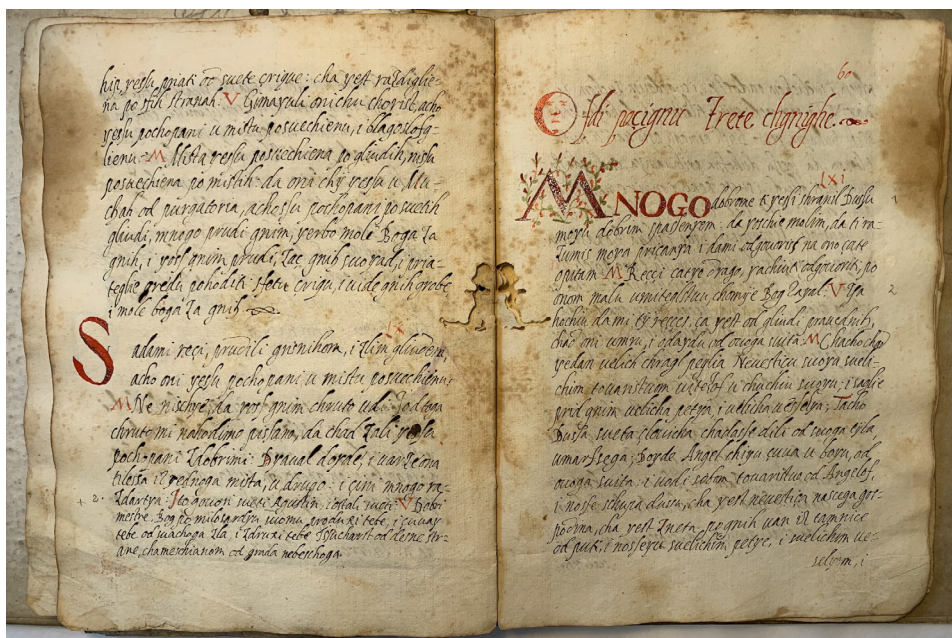 hip, yessu priati od suete crique: cha yest razdiglie-
na po sfih stranah. V Gimayuli onichu chorist, acho
yessu pochopani u mistu posuechienu, i blagoslofg-
lienu. M Mista yessu posuechiena po gliudih, nissu
posuechiena po mistih: da oni chy yessu u Mu-
chah od purgatoria, achossu pochopani po suetih
gliudi, mnogo prudi gnim, yerbo mole Boga za
gnih, i yosc gnim prudi, zac gnih suoradi, i pria-
teglie gredu pohoditi stetu crigu, i uide gnih grobe
i mole boga za gnih
lx
Sadami reci, prudili grisnihom, i zlim gliudem,
acho oni yessu pochopani u mistu posuechienu;
M Ne nischye, da yosc gnim chruto udi, zod toga
chruto mi nahodimo pissano, da chad zali yessu
pochopani zdobrimi: Dyaual dojde, i uarzeona
tilessa iz yednoga mista, u drugo: i cini mnogo ra-
+ 2. zdartya: Tuo gouori sueti Agustin, i ostali sueti. V Dobri
mestre. Bog po milosardyu suomu produzi tebe, i cuuay
tebe od suachoga zla, i zdruzi tebe Isucharst od desne str-
ane, chameschianom od grada nebeschoga.
60
Ofdi pocigniu Trete chgnighe.
lxi
MNOGO dobrome ti yessi shranil Dussu 1
moyu dobrim spassenyem: da yoschie molim, da ti ra-
zumis moya pitanya i dami odgouoris na ono ca te
opitam. M Recci catye drago, yachiuti odgouoriti, po
onom malu umiteglstuu, chomye Bog zapal. V Ya 2
hochiu da mi ty recces, ca yest od gliudi prauednih,
chad oni umru, i odaydu od ouoga suita. M Chacho chad
yedan uelich chragl peglia Neuesticu suoyu sueli-
chim touaristuom uzetos u chuchiu suoyu: i sadie
prid gnim uelicha petya, i uelicha uesselya; Tacho
Dussa sueta zlouicha, chadasse dili od suoga tila
umarssega; Doyde Angel chiyu cuua u boyu, od
ouoga suita: i uodi sobom touaristuo od Angelof,
i nosse schuza dusu, cha yest neuestica nascega gos-
podina, cha yest zneta po gnih uan iz tamnice
od puti, i nosseyu suelichim petye, i suelichim ue-
selyem, i